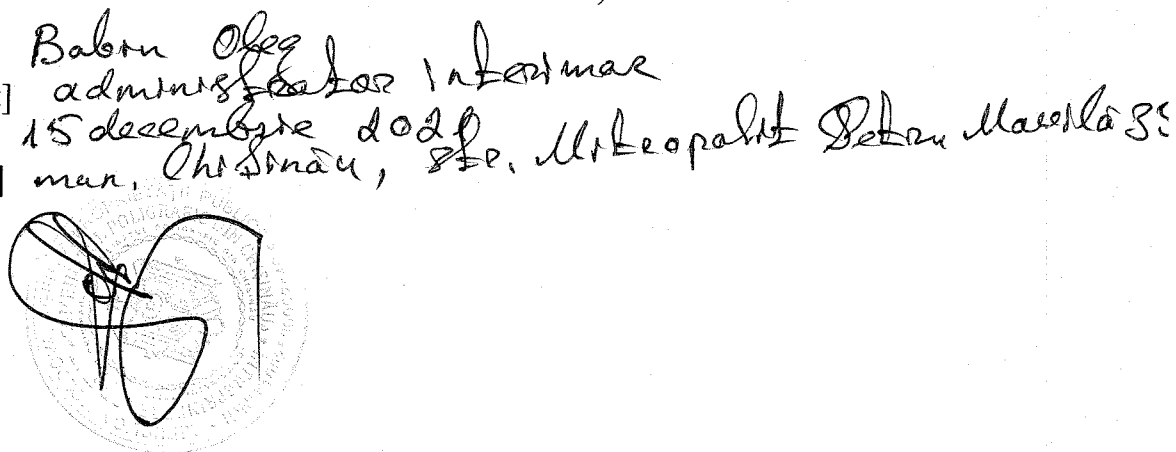 Babin Oleg
administrator interimar
15 decembrie 2020
mun. Chișinău, str. Mitropolit Petru Movilă 35